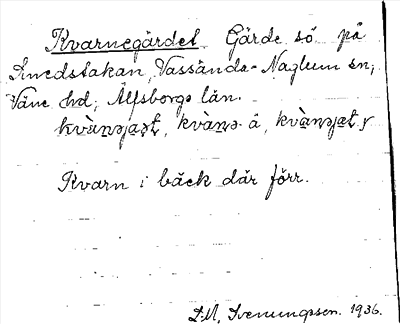 Kvarnegärdet Gärde sö på
Smedstakan, Vassända-Naglum sn,
Väne hd, Älfsborgs län.
kvàṉəja̱ət, kvàṉə- å, kvàṉəja̱t ɣ
Kvarn i bäck där förr.
D.M. Svenungsson. 1936.